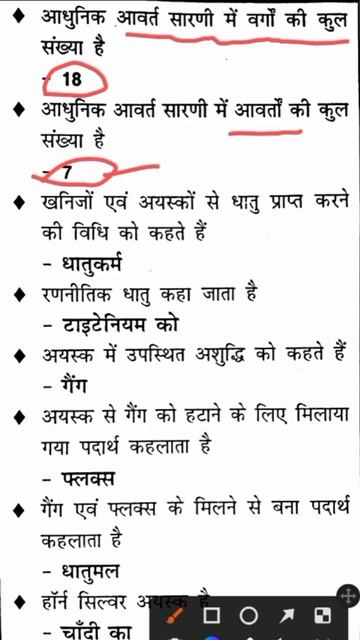 ♦ आधुनिक आवर्त सारणी में वर्गों की कुल
संख्या है
- 18
♦ आधुनिक आवर्त सारणी में आवर्तों की कुल
संख्या है
- 7
♦ खनिजों एवं अयस्कों से धातु प्राप्त करने
की विधि को कहते हैं
- धातुकर्म
♦ रणनीतिक धातु कहा जाता है
- टाइटेनियम को
♦ अयस्क में उपस्थित अशुद्धि को कहते हैं
- गैंग
♦ अयस्क से गैंग को हटाने के लिए मिलाया
गया पदार्थ कहलाता है
- फ्लक्स
♦ गैंग एवं फ्लक्स के मिलने से बना पदार्थ
कहलाता है
- धातुमल
♦ हॉर्न सिल्वर अयस्क है
- चाँदी का